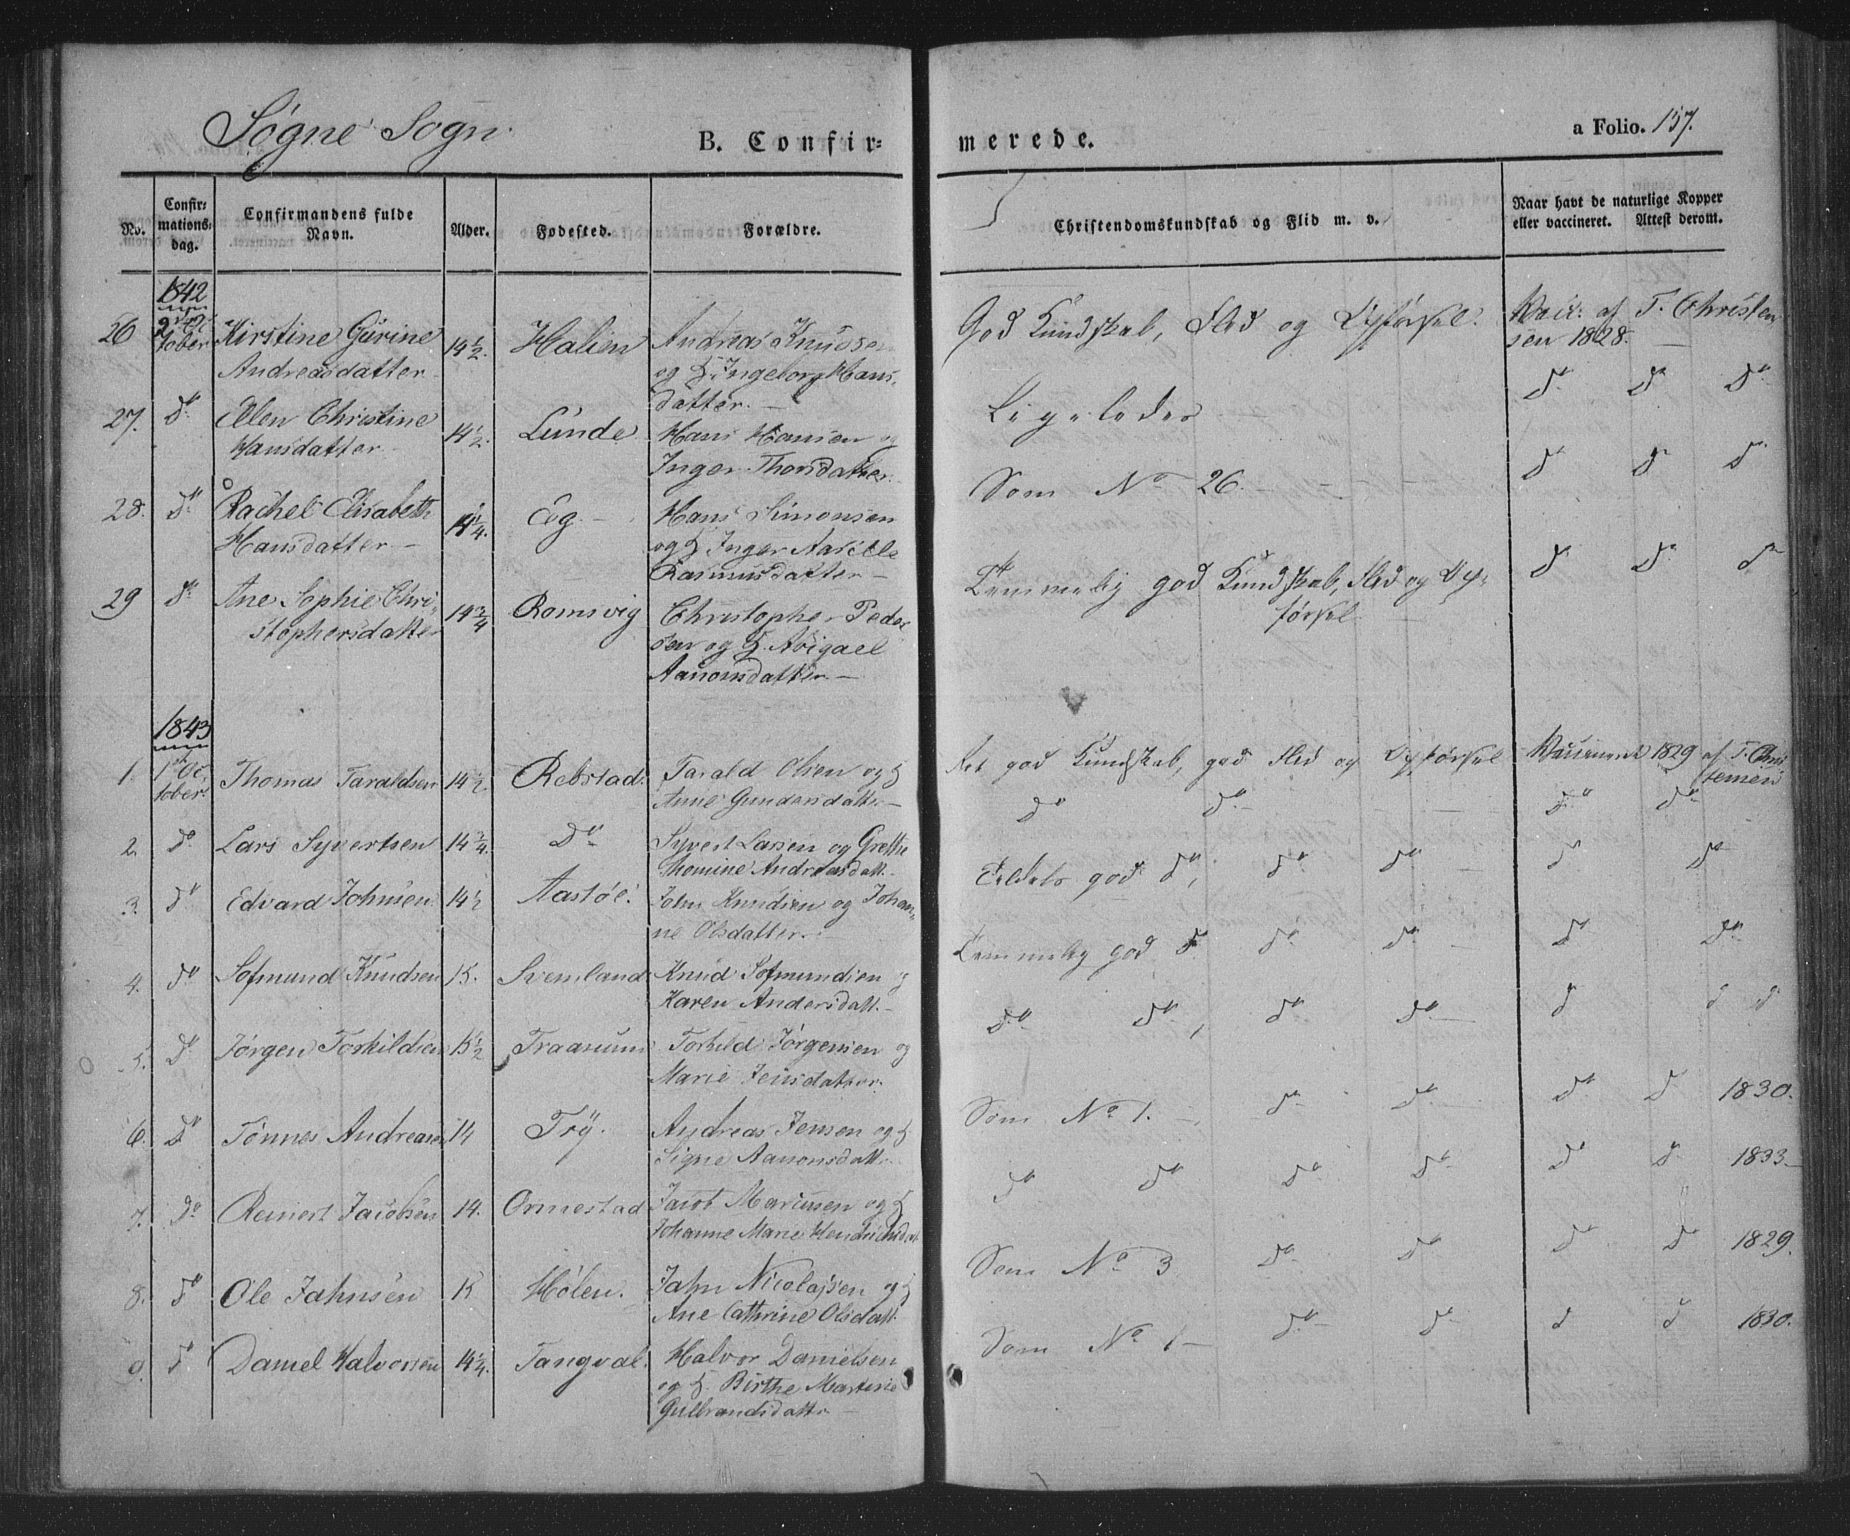 Søgne Sogn
B. Confir-
merede.
a Folio. 157.
No.
Confir-
mations-
dag.
Confirmandens fulde
Navn.
Alder.
Fødested.
Forældre.
Christendomskundskab og Flid m. v.
Naar havt de naturlige Kopper
eller vaccineret. Attest derom.
1842
26 2 Oc
tober Kirstine Gurine 14 1/2. Halien Andreas Knudsen God Kundskab, Flid og Opførsel. Vacc. af T. Christen
Andreasdatter og H. Ingeborg Hans- sen 1828. —
datter. — do do do
27. do Ellen Christine 14 1/2. Lunde Hans Hansen og Ligeledes
Hansdatter Inger Thorsdatter. do do do
28. do Rachel Elisabeth 14 1/4. Eg. — Hans Simonsen Som No 26. —
Hansdatter — og H Inger Aasille do do do
Rasmusdatter —
29 do Ane Sophie Chri- 14 3/4 Romsvig Christopher Peder Temmelig god Kundskab, Flid og Op-
stophersdatter sen og H. Abigael førsel
Aanonsdatter —
1843
1. 1 Oc
tober Thomas Taraldsen 14 1/2 Rebstad. Tarald Olsen og H Ret god Kundskab, god Flid og Opførsel Vaccineret 1829 af T. Chris
Anne Gundersdattr. — tensen
do do do do
2. do Lars Syvertsen 14 3/4. Do Syvert Larsen og Grethe
Thomine Andreasdatt. —
3. do Edvard Johnsen 14 1/2 Aastøl. John Knudsen og Johan- god do, do do do do
ne Olsdatter. —
4. do Sofmund Knudsen 15. Svenland Knud Sofmundsen og Temmelig god do do do do do
Karen Andersdatt. —
5. do Jørgen Torkildsen 15 1/2 Traanum Torkild Jørgensen og do do, do do do do do
Marie Jensdatter.
6. do Tønnes Andreasen 14 Try. Andreas Jensen og H Som No 1. — do do do do 1830.
Signe Aanonsdatt.
7. do Reinert Jacobsen 14. Ormestad Jacob Marcusen og H do do do do do do 1833 —
Johanne Marie Hendrichsdat
8. do Ole Jahnsen 15 Hølen. Jahn Nicolajsen og H Som No 3 do do do do 1829.
Ane Cathrine Olsdatt.
9. do Daniel Halvorsen 14 1/4. Tangval. Halvor Danielsen Som No 1 — do do do do 1830.
og H. Birthe Martine
Gulbrandsdattr —